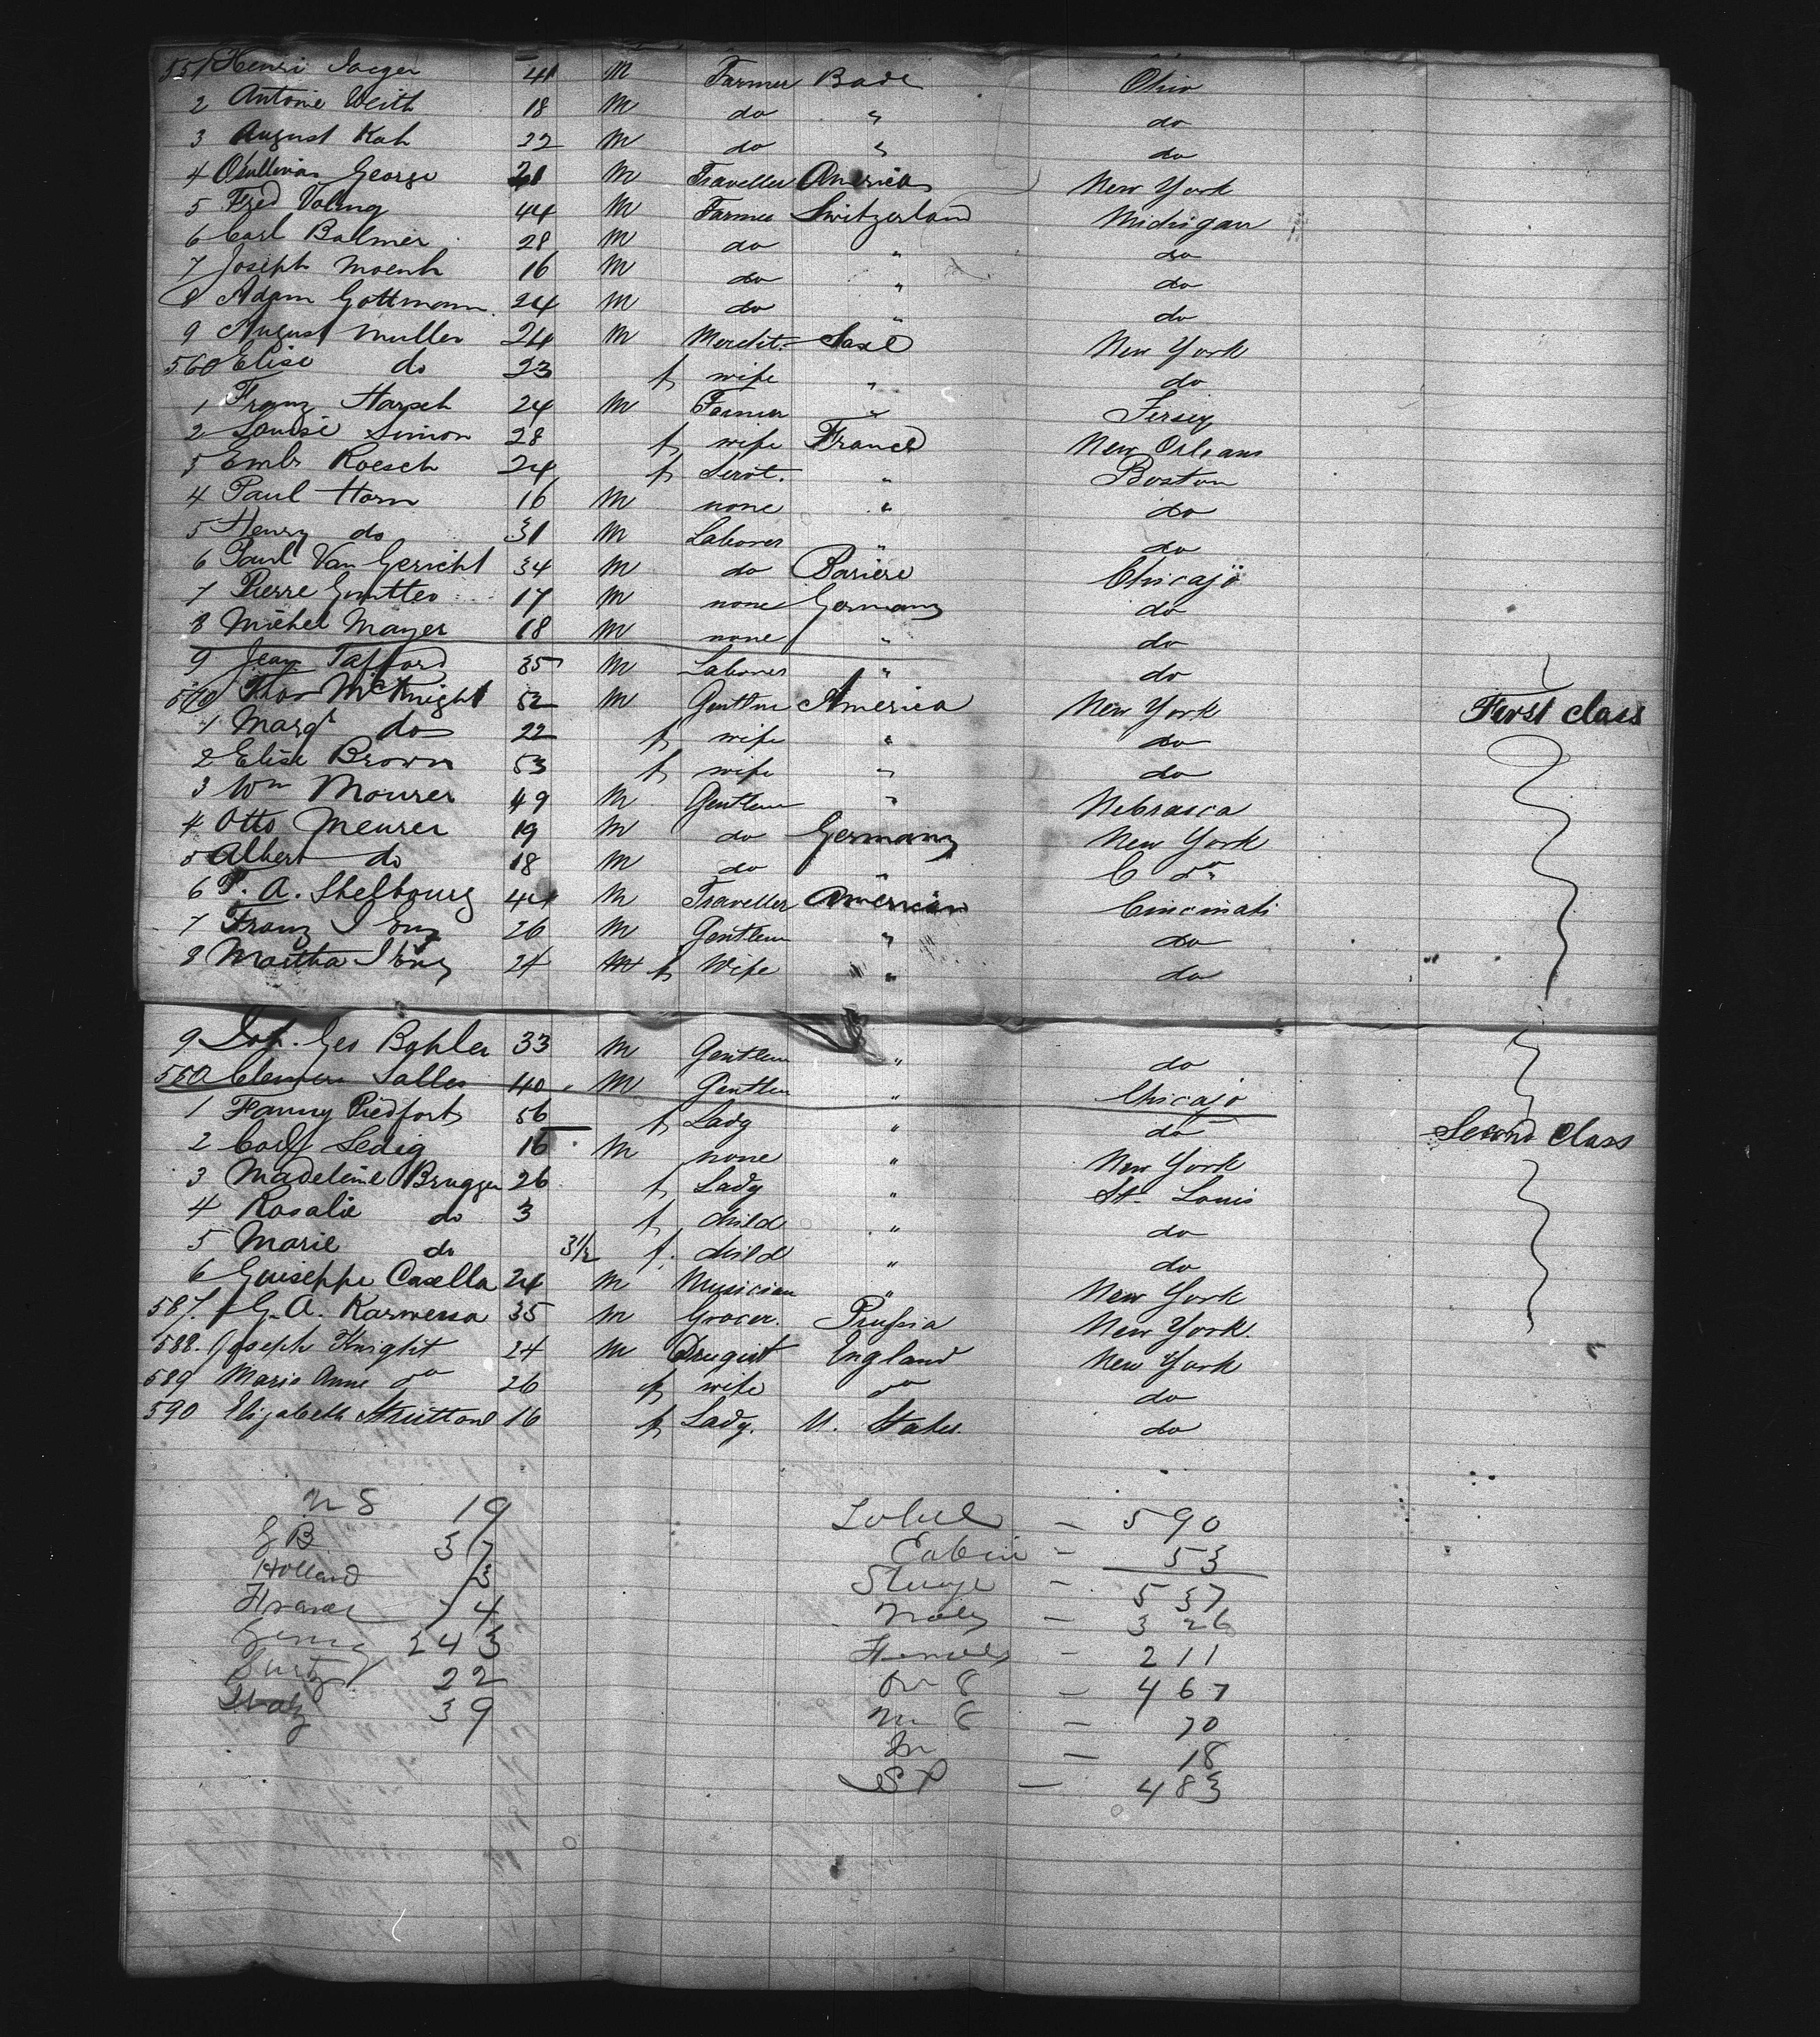 551 Henri Jaeger 41 M Farmer Bade Ohio
2 Antoine Weith 18 M do " do
3 August Kah 22 M do " do
4 Osullivan George 21 M Traveller America New York
5 Fred Voling 44 M Farmer Switzerland Michigan
6 Carl Balmer 28 M do " do
7 Joseph Moenh 16 M do " do
8 Adam Gottmann 24 M do " do
9 August Muller 24 M Saxe New York
560 Elise do 23 f wife " do
1 Franz Harsch 24 M Farmer " Jersey
2 Louise Simon 28 f wife France New Orleans
3 Emle Roesch 24 f Servt. " Boston
4 Paul Horn 16 M none " do
5 Henry do 31 M Laborer " do
6 Paul Van Gericht 34 M do Baviere Chicajo
7 Pierre 17 M none Germany do
8 Michel Mayer 18 M none " do
9 Jean Tafford 35 M Laborer " do
570 Thos McKnight 52 M Gentlm America New York First class
1 Margt do 22 f wife " do
2 Elise Brown 53 f wife " do
3 Wm Mourer 49 M Gentlem " Nebrasca
4 Otto Meurer 19 M do Germany New York
5 Albert do 18 M do " do
6 T. A. Shelbourg 44 M Traveller American Cincinati
7 Franz 26 M Gentlem " do
8 Martha 24 f Wife " do
9 Joh. Geo Bohler 33 M Gentlem " do
580 Clemens Salles 40 M Gentlem " Chicajo
1 Fanny Piedfort 56 f Lady " do Second Class
2 Carl Ledig 16 M none " New York
3 Madeleine Brugger 26 f Lady " St Louis
4 Rosalie do 3 f child " do
5 Marie do 3 1/2 f. child " do
6 Guiseppe Casella 24 M Musician " New York
587. G. A. Karwersa 35 M Grocer. Prussia New York.
588. Joseph Knight 24 M Drugist England New York
589 Marie Anne do 26 f wife do do
590 Elizabeth Strittone 16 f Lady. U. States. do
U S 19 Total — 590
G B 37 Cabin — 53
Holland 3 Steerage — 537
France 74 Males — 326
Germy 343 Females — 211
22 Ov 8 — 467
Italy 39 Un 8 — 70
In — 18
S P — 483